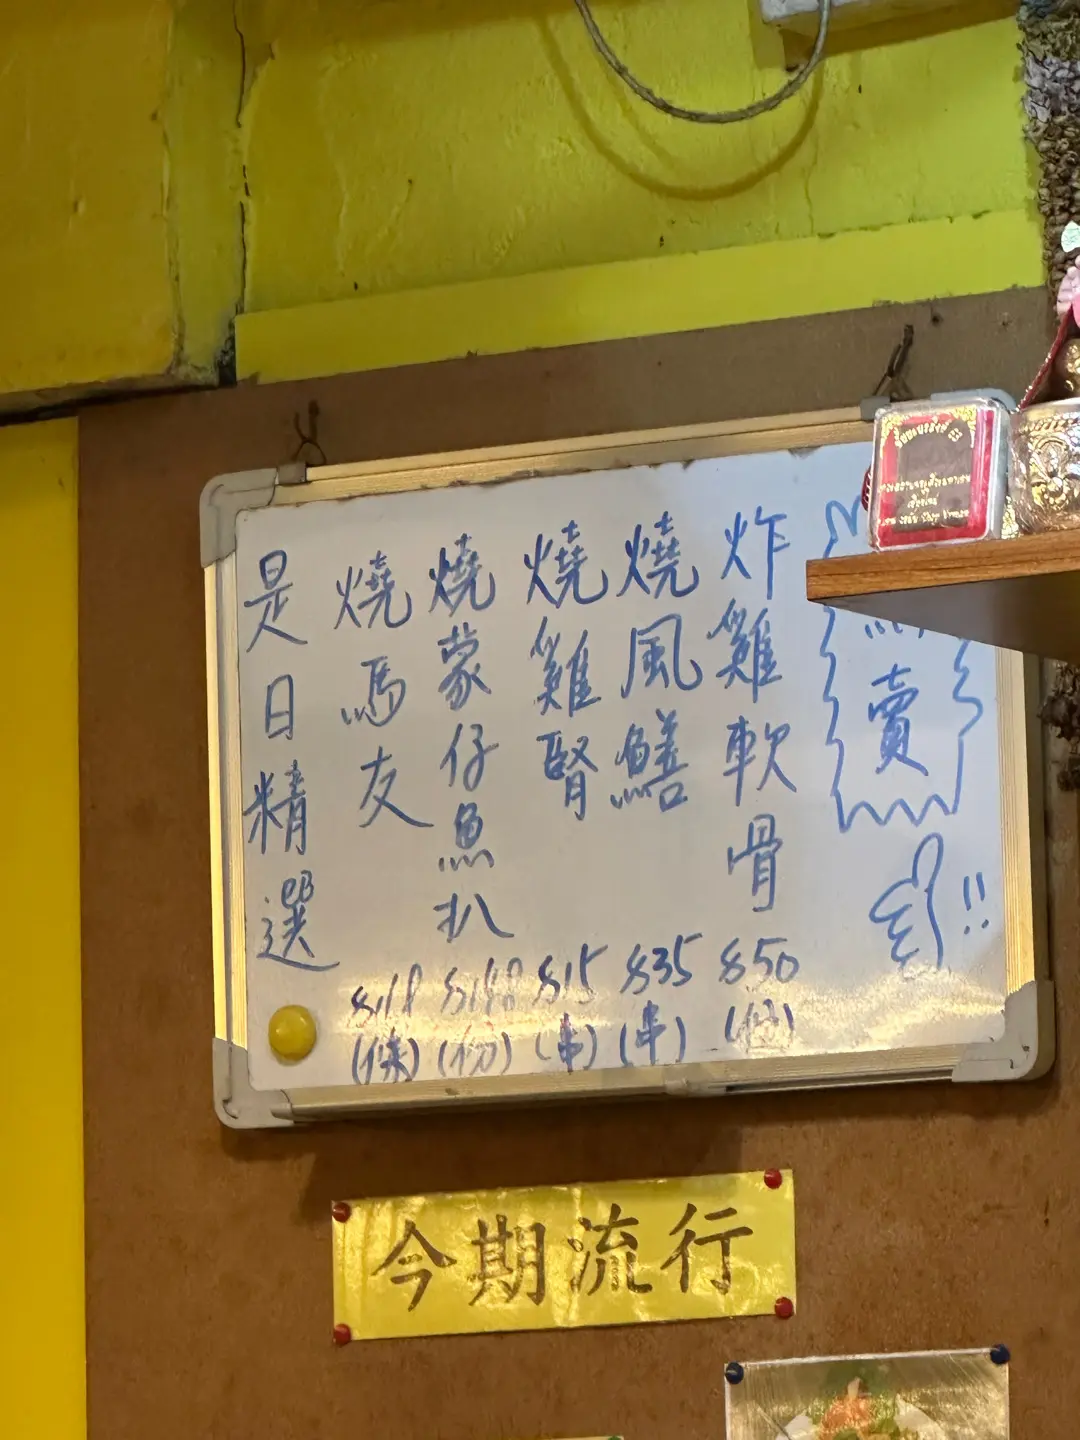 是日精選
燒馬友
$118
(條)
燒蒙仔魚扒
(份)
燒雞腎
$15
(串)
燒風鱔
$35
(串)
炸雞軟骨
$50
賣
!!
今期流行